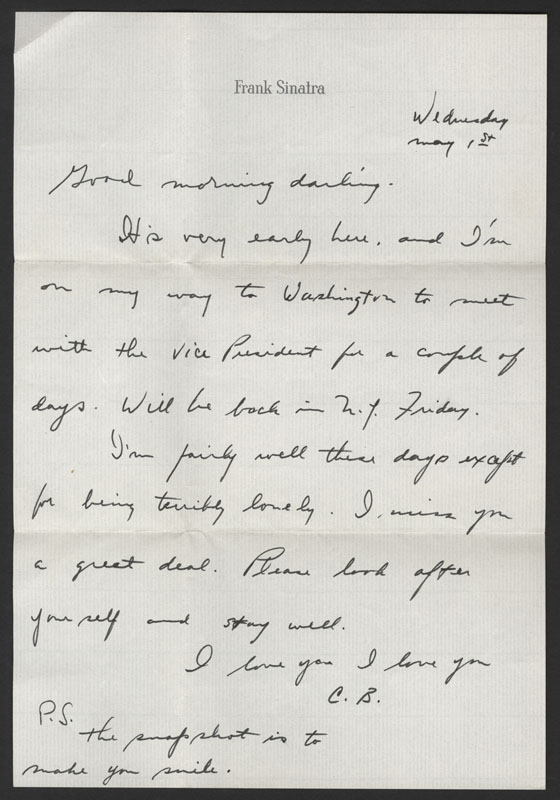 Frank Sinatra
Wednesday
May 1st
Good morning darling.
It's very early here, and I'm
on my way to Washington to meet
with the Vice President for a couple of
days. Will be back in N.Y. Friday.
I'm fairly well these days except
for being terribly lonely. I miss you
a great deal. Please look after
yourself and stay well.
I love you I love you
C.B.
P.S.
the snapshot is to
make you smile.